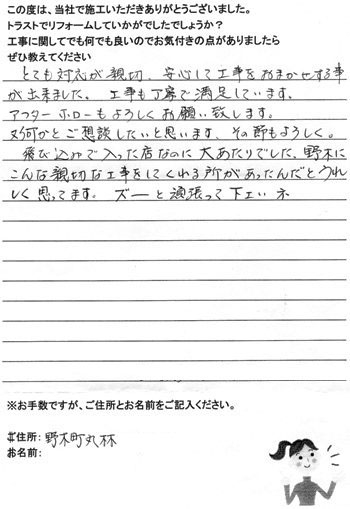 この度は、当社で施工いただきありがとうございました。
トラストでリフォームしていかがでしたでしょうか？
工事に関してでも何でも良いのでお気付きの点がありましたら
ぜひ教えてください
とても対応が親切、安心して工事をおまかせする事
が出来ました。 工事も丁寧で満足しています。
アフターホローもよろしくお願い致します。
又何かとご想談したいと思います、その節もよろしく。
飛び込みで入った店なのに大あたりでした。野木に
こんな親切な工事をしてくれる所があったんだとうれ
しく思ってます。 ズーと頑張って下さいネ
※お手数ですが、ご住所とお名前をご記入ください。
ご住所: 野木町丸林
お名前: